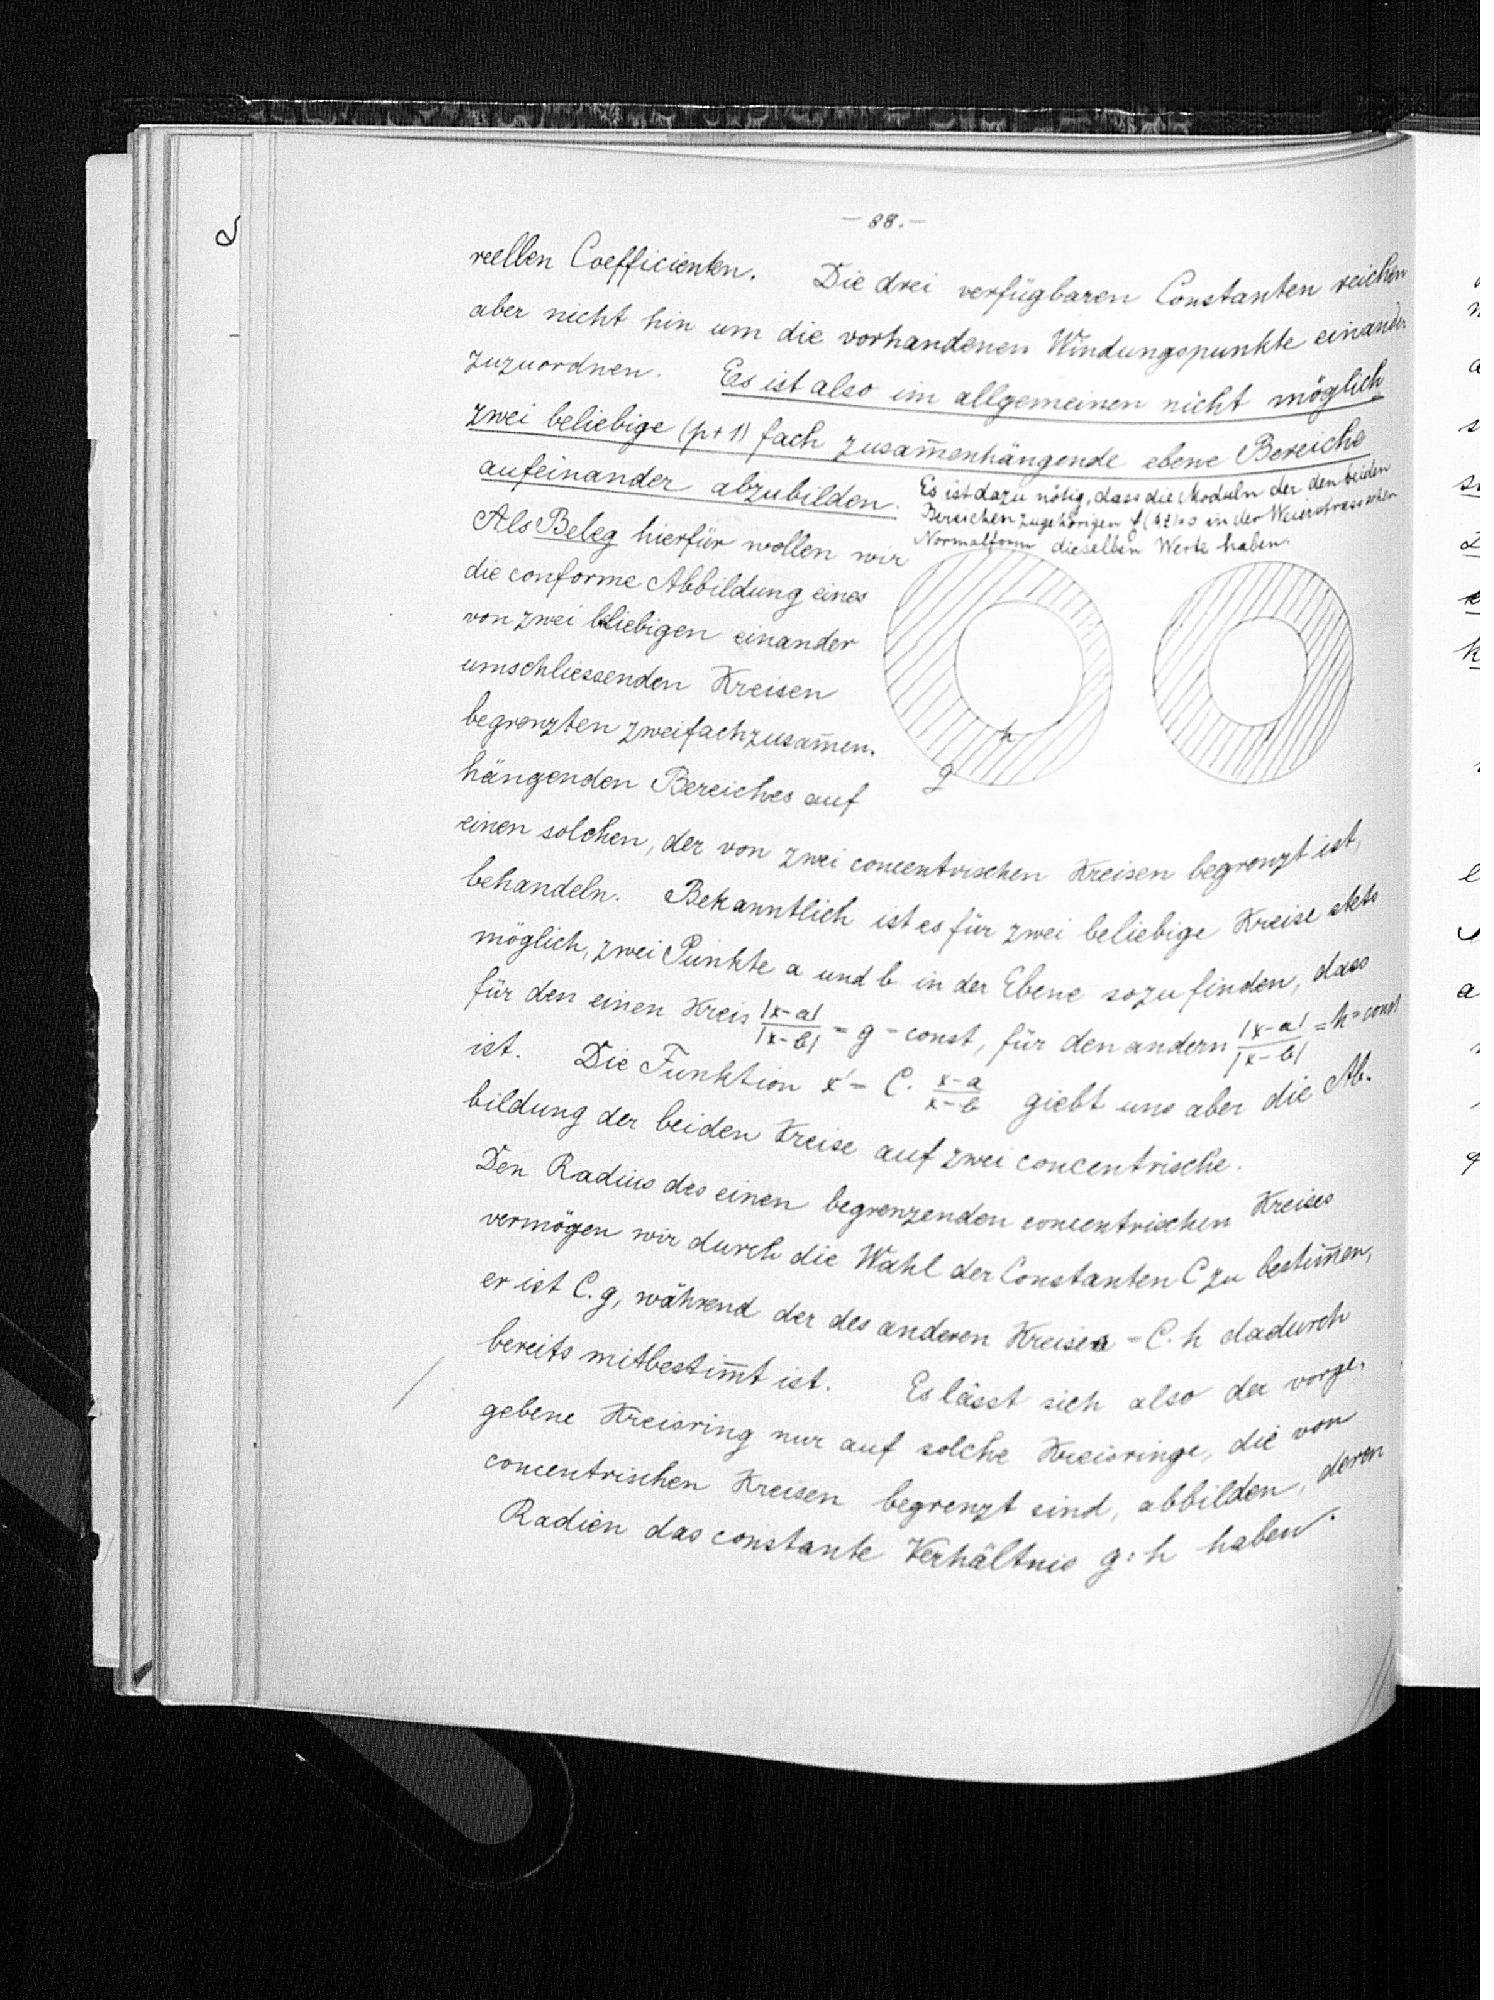 - 88. -
reellen Coefficienten. Die drei verfügbaren Constanten reichen
aber nicht hin um die vorhandenen Windungspunkte einander
zuzuordnen. Es ist also im allgemeinen nicht möglich
zwei beliebige (p+1) fach zusam̅enhängende ebene Bereiche
aufeinander abzubilden.
Es ist dazu nötig, dass die Moduln der den beiden
Bereichen zugehörigen f(s,z)=0 in der Weierstrassschen
Normalform dieselben Werte haben.
Als Beleg hierfür wollen wir
die conforme Abbildung eines
von zwei beliebigen einander
umschliessenden Kreisen
begrenzten zweifachzusam̅en-
hängenden Bereiches auf
h
g
einen solchen, der von zwei concentrischen Kreisen begrenzt ist,
behandeln. Bekanntlich ist es für zwei beliebige Kreise stets
möglich, zwei Punkte a und b in der Ebene so zu finden, dass
für den einen Kreis |x-a|/|x-b| = g = const, für den andern |x-a|/|x-b| = h = const
ist. Die Funktion x' = C. x-a/x-b giebt uns aber die Ab-
bildung der beiden Kreise auf zwei concentrische.
Den Radius des einen begrenzenden concentrischen Kreises
vermögen wir durch die Wahl der Constanten C zu bestim̅en,
er ist C.g, während der des anderen Kreises = C.h dadurch
bereits mitbestim̅t ist. Es lässt sich also der vorge-
gebene Kreisring nur auf solche Kreisringe, die von
concentrischen Kreisen begrenzt sind, abbilden, deren
Radien das constante Verhältnis g:h haben.